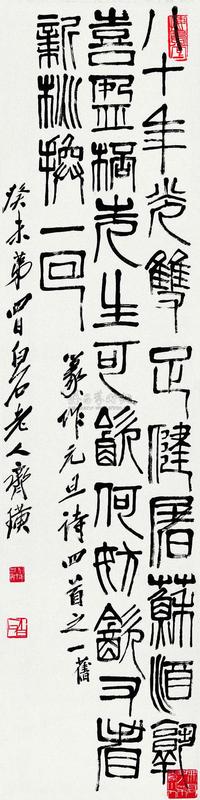 八十年光雙足健屠蘇酒熟
喜盈桮先生可飲何妨飲又看
新桃換一回
篆作元旦詩四首之一舊
癸未第四日白石老人齊璜